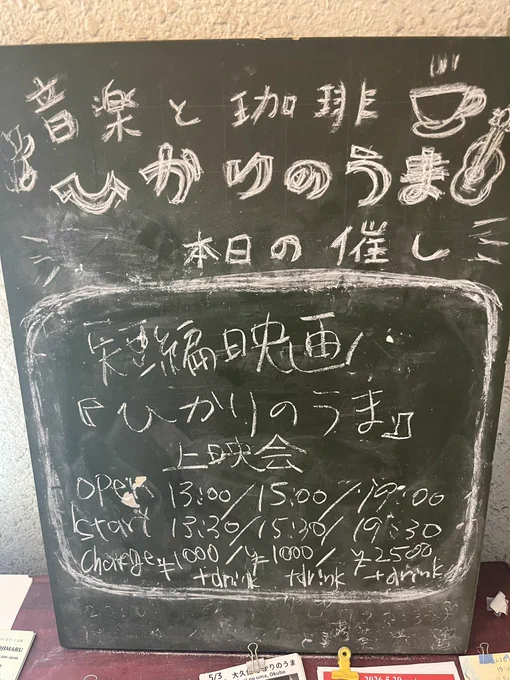 音楽と珈琲
ひかりのうま
本日の催し
短編映画
『ひかりのうま』
上映会
open 13:00/15:00/19:00
start 13:30/15:30/19:30
charge ¥1000/¥1000/¥2500
+drink +drink +drink
OJIMARU
5/3. 大久保ひかりのうま
no uma, Okubo